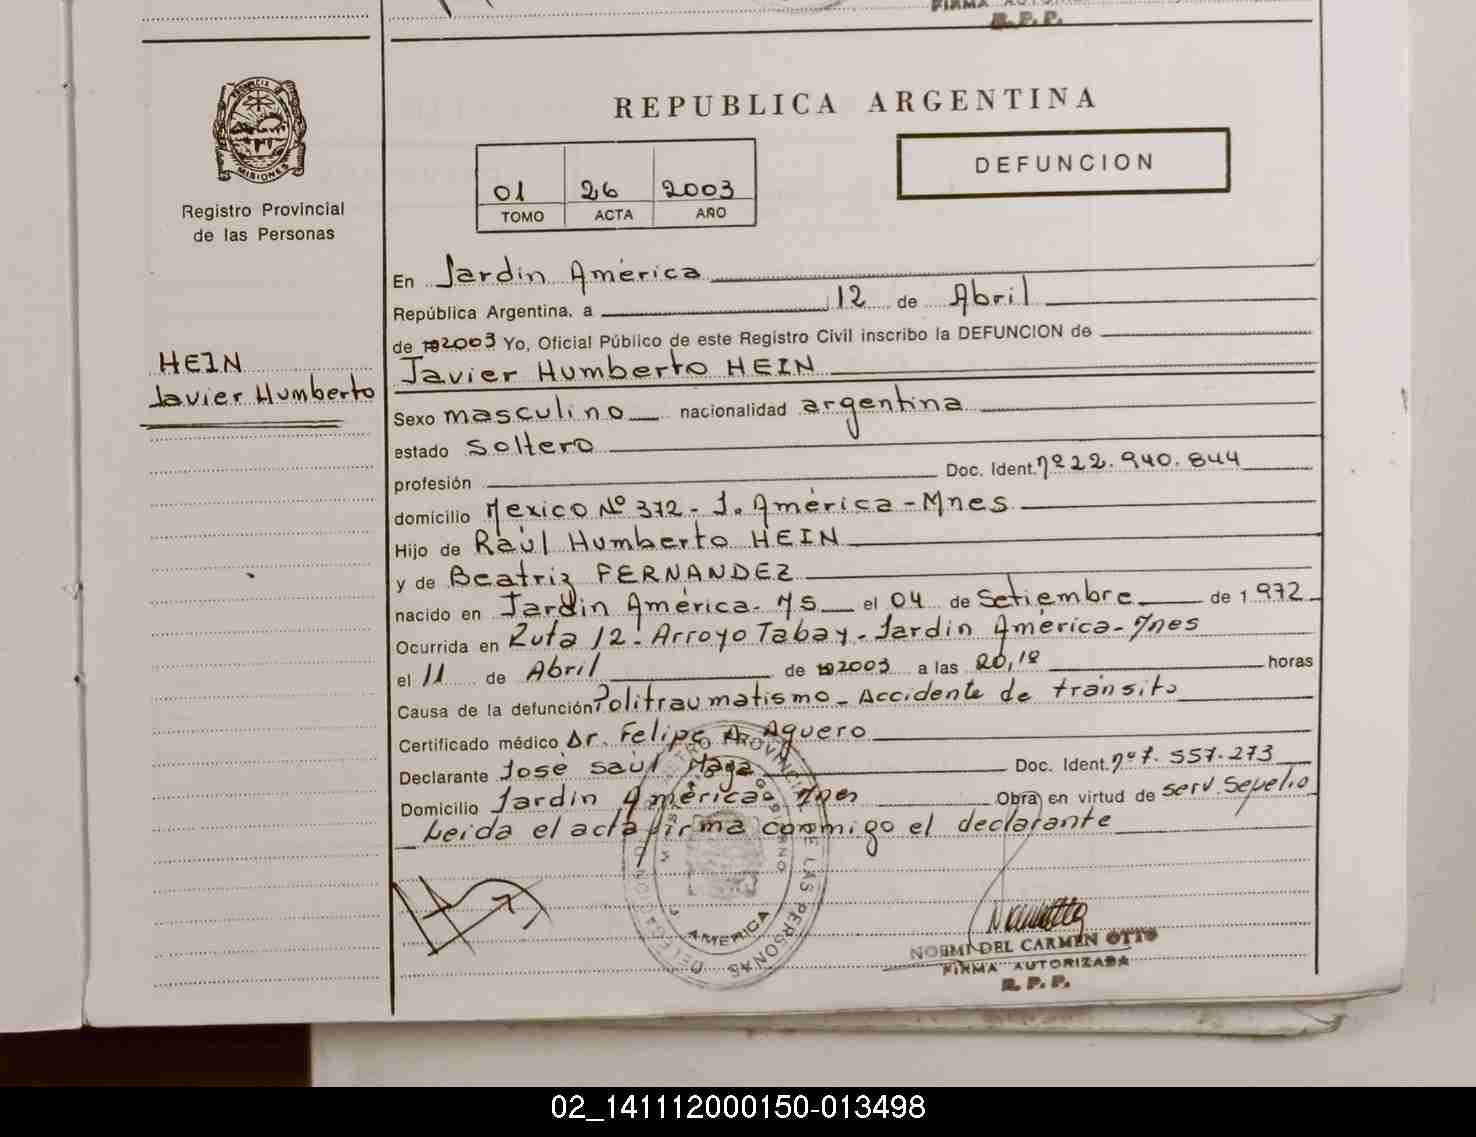 FIRMA AUTORIZADA
R. P. P.
PROVINCIA DE
MISIONES
Registro Provincial
de las Personas
HEIN
Javier Humberto
REPUBLICA ARGENTINA
01 26 2003
TOMO ACTA AÑO
DEFUNCION
En Jardin América
República Argentina, a 12 de Abril
de 19 2003 Yo, Oficial Público de este Registro Civil inscribo la DEFUNCION de
Javier Humberto HEIN
Sexo masculino nacionalidad argentina
estado Soltero
profesión Doc. Ident. nº 22.940.844
domicilio Mexico Nº 372 - J. América - Mnes
Hijo de Raúl Humberto HEIN
y de Beatriz FERNANDEZ
nacido en Jardin América - Ms el 04 de Setiembre de 1.972
Ocurrida en Ruta 12 - Arroyo Tabay - Jardin América - Mnes
el 11 de Abril de 19 2003 a las 20,10 horas
Causa de la defunción Politraumatismo - Accidente de tránsito
Certificado médico Dr. Felipe A. Aguero
Declarante José Saúl Maga Doc. Ident. nº 7.557.273
Domicilio Jardin América - Mnes Obra en virtud de Serv. Sepelio
Leida el acta firma conmigo el declarante
REGISTRO PROVINCIAL DE LAS PERSONAS DELEGACION
J. AMERICA
NOEMI DEL CARMEN OTTO
FIRMA AUTORIZADA
R. P. P.
02_141112000150-013498